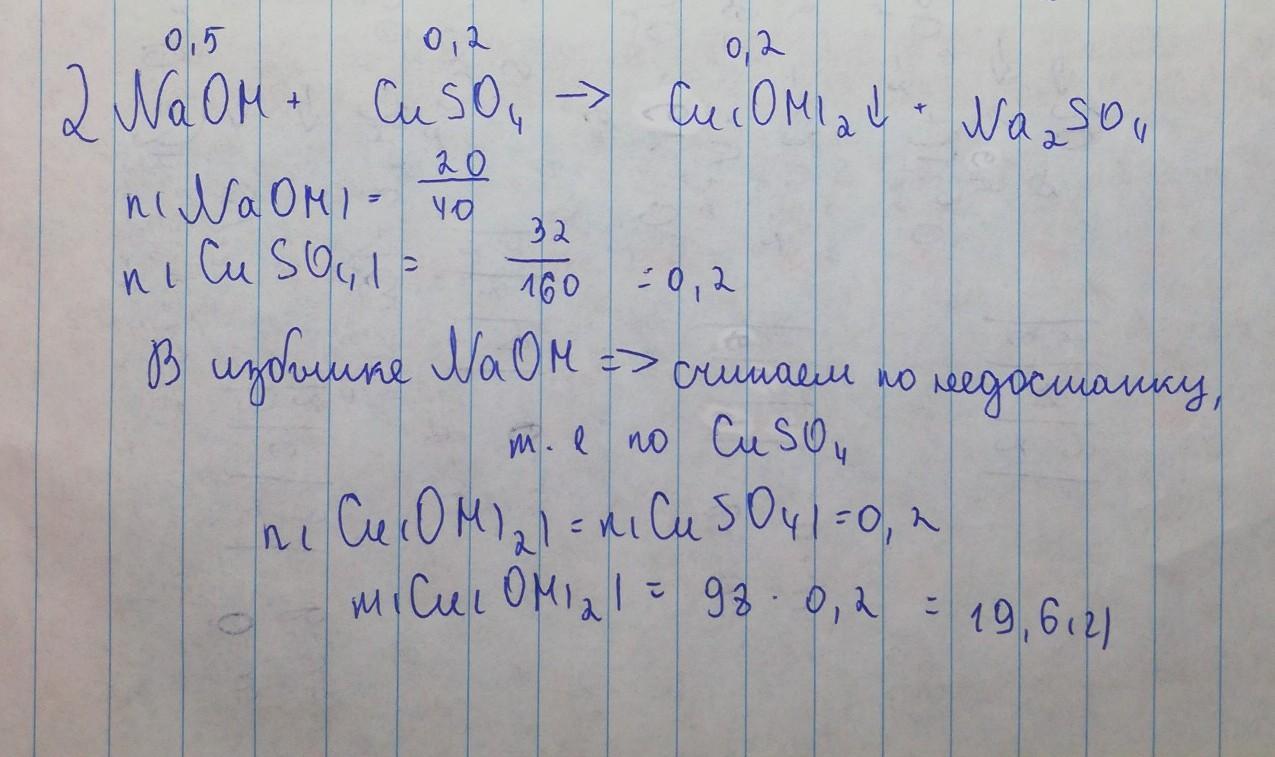 0,5 0,2 0,2
2 NaOH + CuSO4 → Cu(OH)2↓ + Na2SO4
n(NaOH) = 20/40
n(CuSO4) = 32/160 = 0,2
В избытке NaOH => считаем по недостатку,
т. е по CuSO4
n(Cu(OH)2) = n(CuSO4) = 0,2
m(Cu(OH)2) = 98 · 0,2 = 19,6(г)